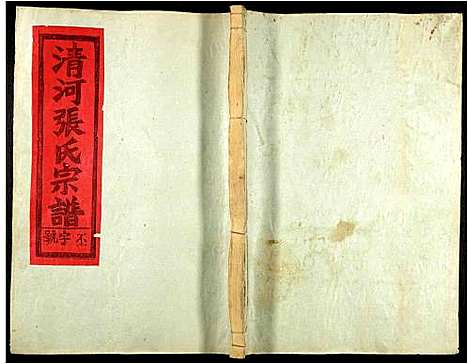 清河張氏宗譜
丕字號